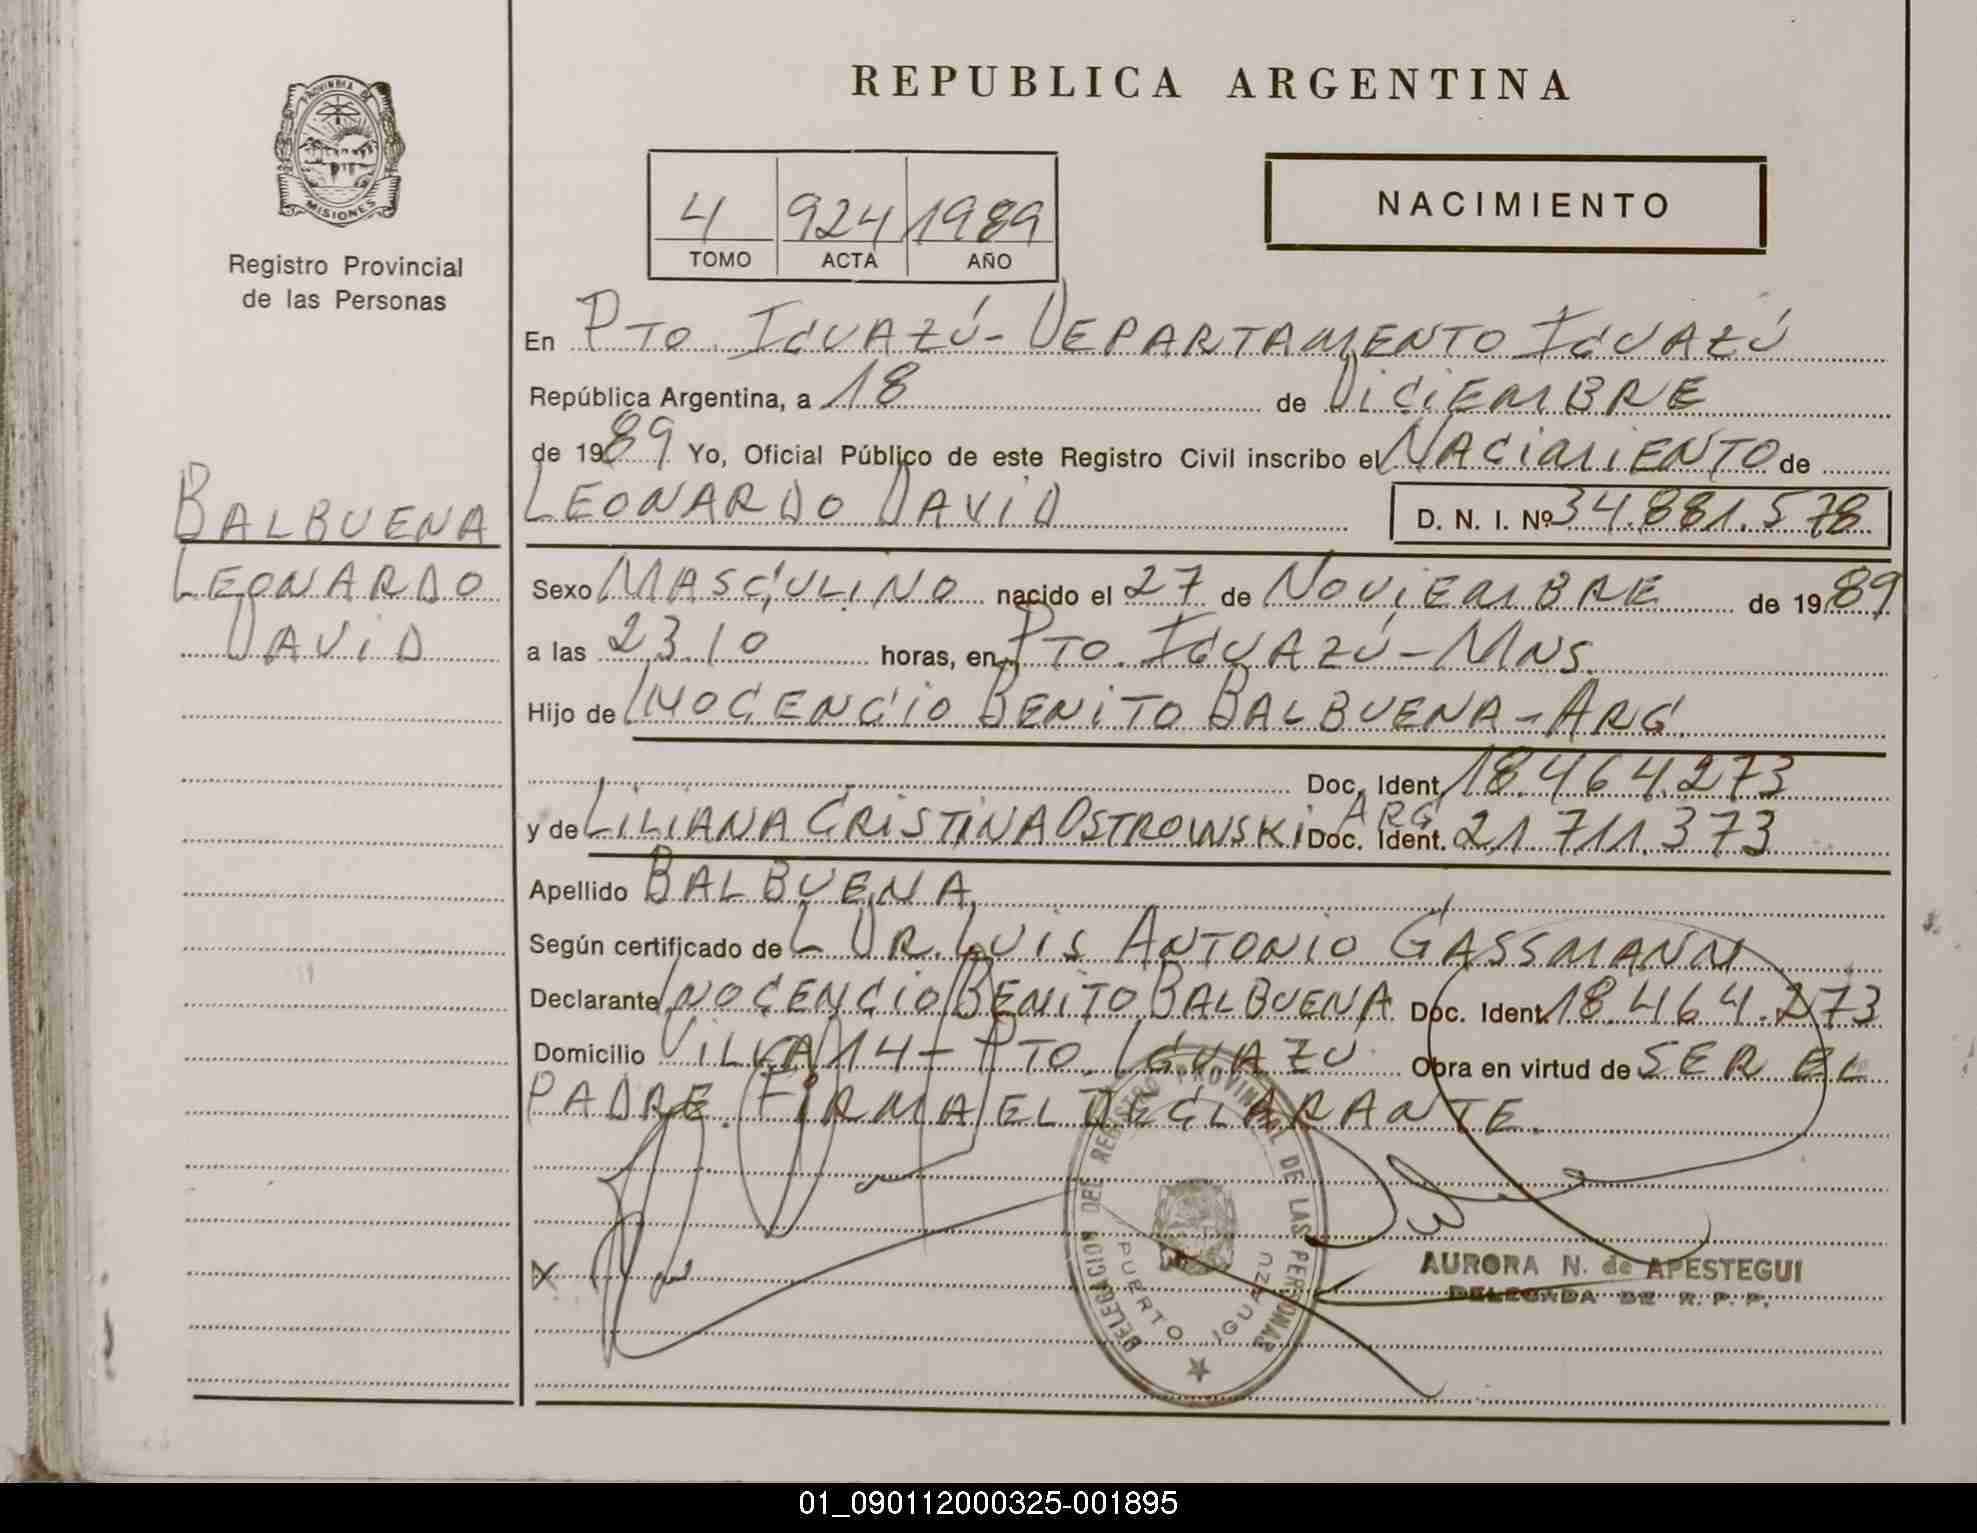 REPUBLICA ARGENTINA
PROVINCIA DE
MISIONES
Registro Provincial
de las Personas
4 924 1989
TOMO ACTA AÑO
NACIMIENTO
En PTO. IGUAZÚ - DEPARTAMENTO IGUAZÚ
República Argentina, a 18 de DICIEMBRE
de 1989 Yo, Oficial Público de este Registro Civil inscribo el NACIMIENTO de
BALBUENA
LEONARDO
DAVID
LEONARDO DAVID D. N. I. Nº 34.881.578
Sexo MASCULINO nacido el 27 de NOVIEMBRE de 1989
a las 23.10 horas, en PTO. IGUAZÚ - MNS.
Hijo de INOCENCIO BENITO BALBUENA - ARG.
Doc. Ident. 18.464.273
y de LILIANA CRISTINA OSTROWSKI ARG Doc. Ident. 21.711.373
Apellido BALBUENA
Según certificado de L DR. LUIS ANTONIO GASSMANN
Declarante INOCENCIO BENITO BALBUENA Doc. Ident. 18.464.273
Domicilio VILLA 14 - PTO. IGUAZU Obra en virtud de SER EL
PADRE. FIRMA EL DECLARANTE.
DELEGACION DEL REGISTRO PROVINCIAL DE LAS PERSONAS
PUERTO IGUAZU
X
AURORA N. de APESTEGUI
DELEGADA DE R. P. P.
01_090112000325-001895